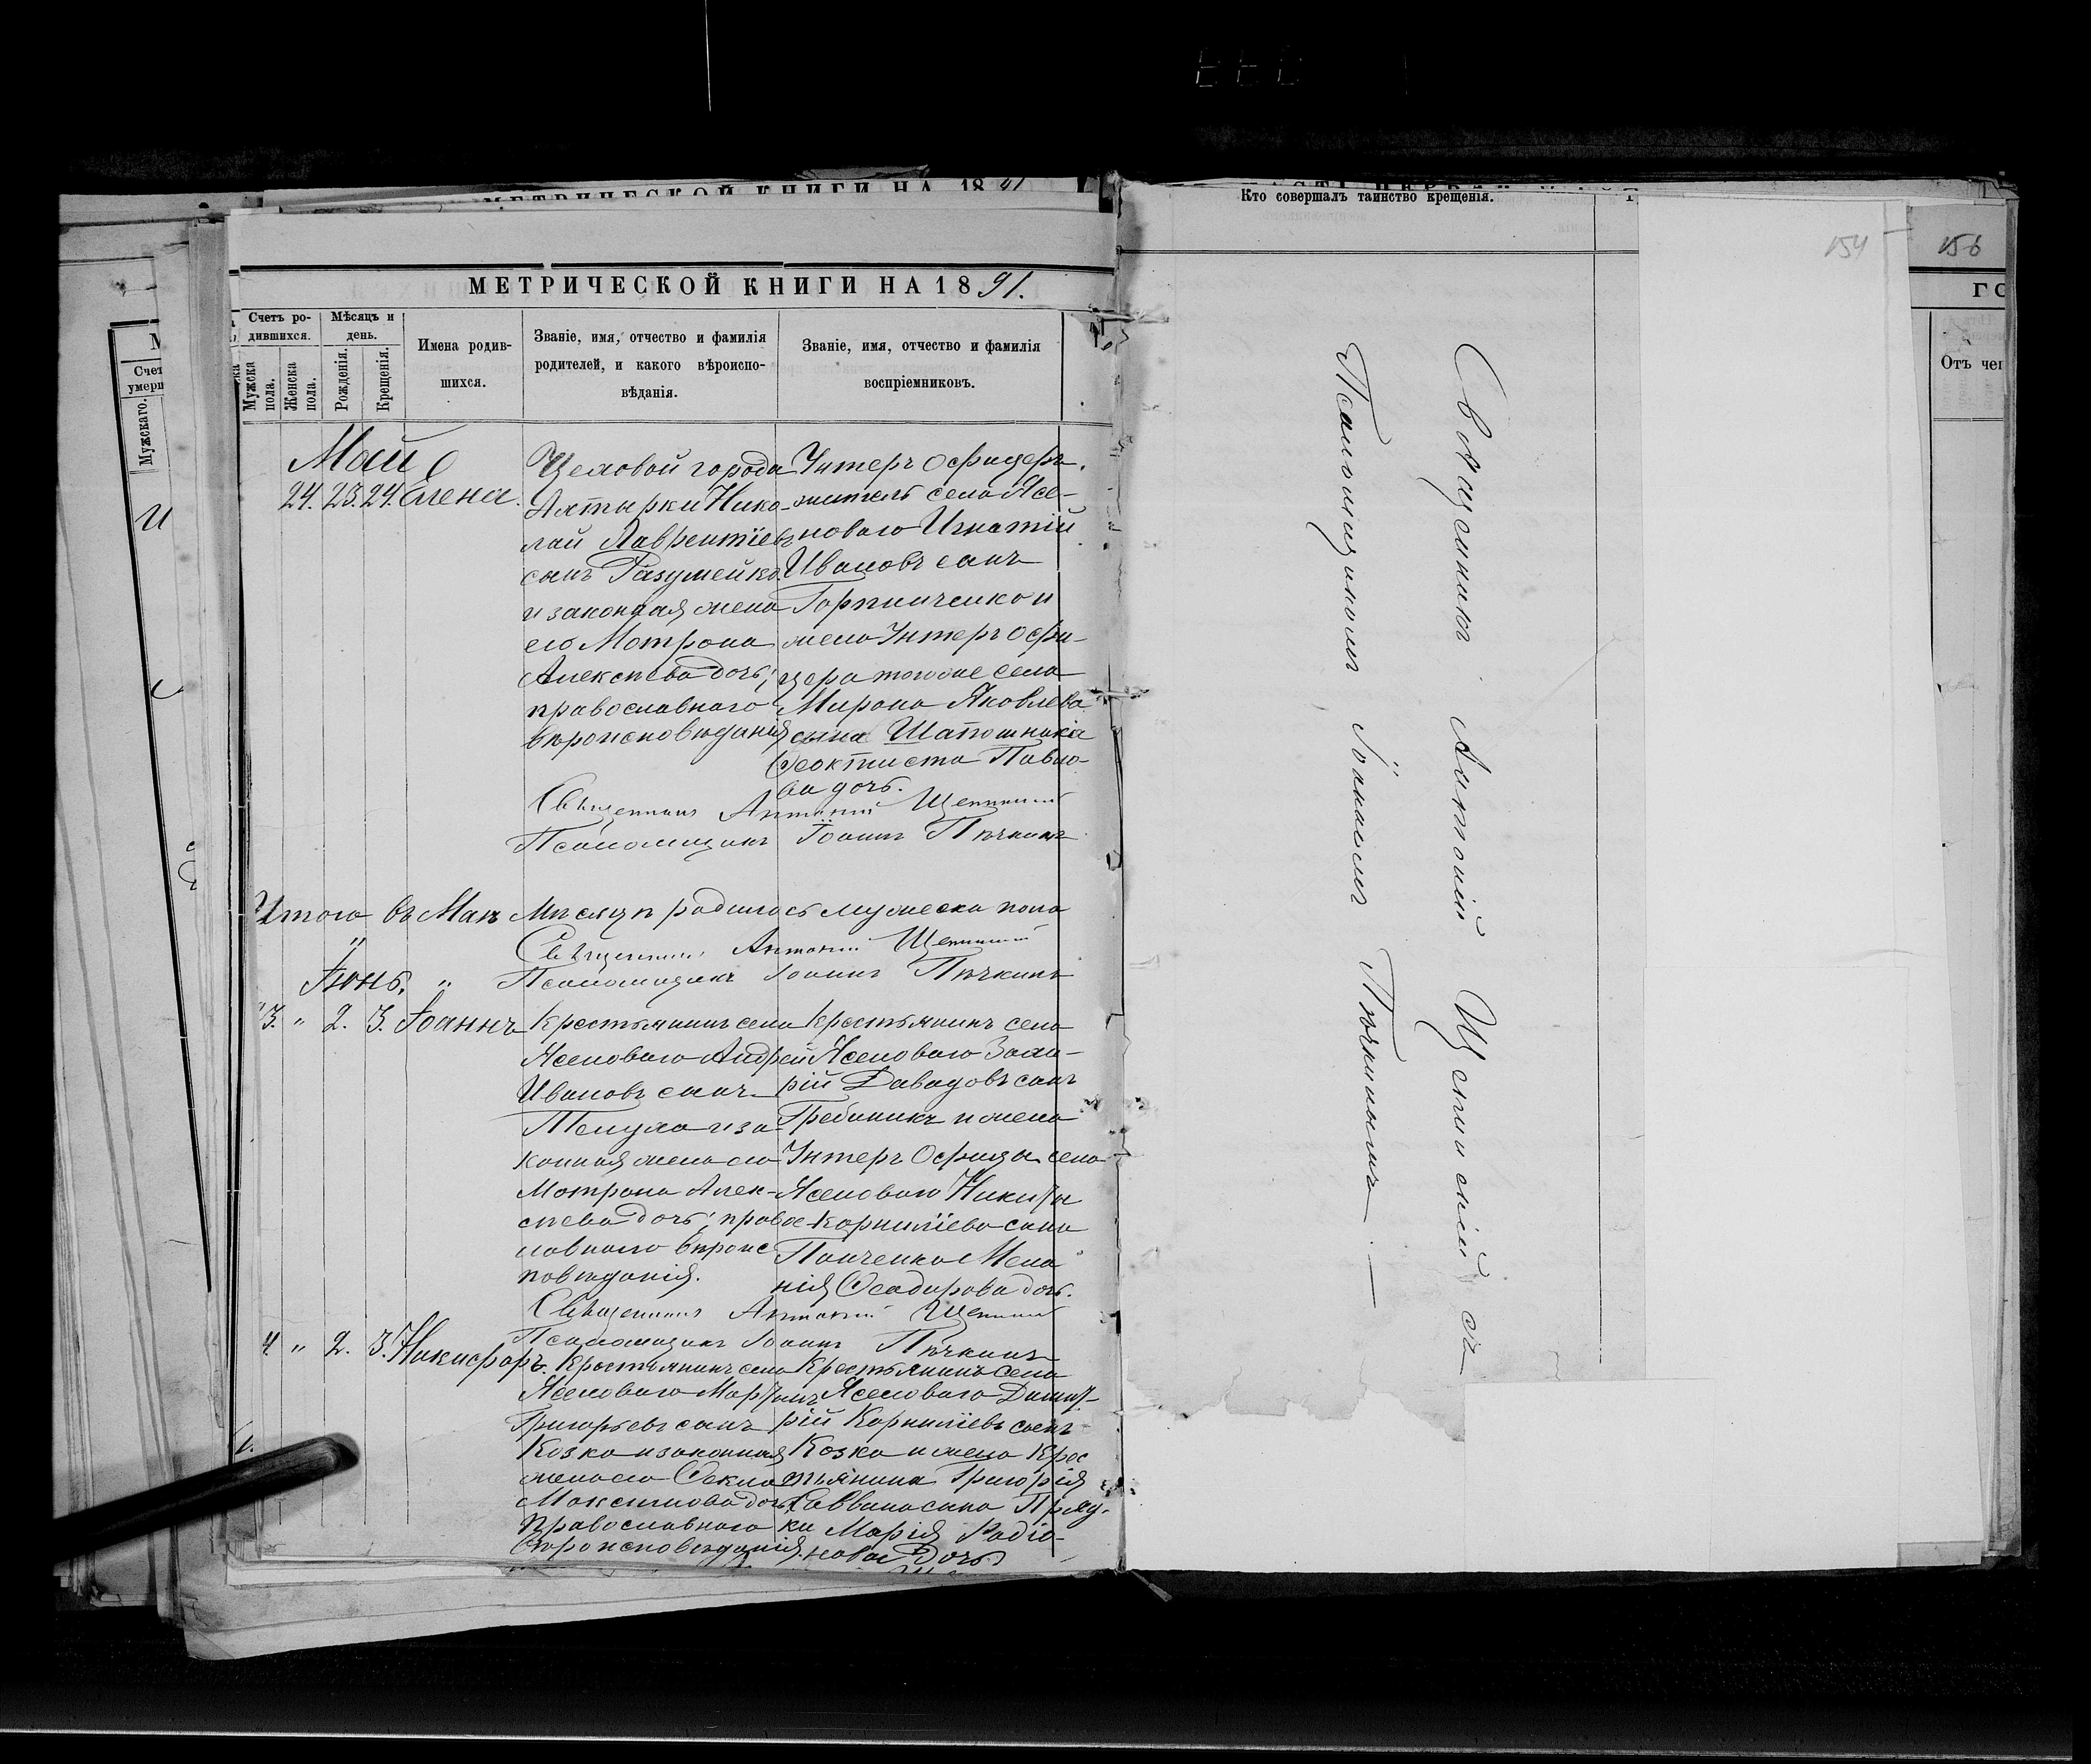 МЕТРИЧЕСКОЙ КНИГИ НА 18 91
МЕТРИЧЕСКОЙ КНИГИ НА 1891.
Счетъ ро-
дившихся.
Мужска
пола.
Женска
пола.
Мѣсяцъ и
день.
Рожденія.
Крещенія.
Имена родив-
шихся.
Званіе, имя, отчество и фамилія
родителей, и какого вѣроиспо-
вѣданія.
Званіе, имя, отчество и фамилія
воспріемниковъ.
Май
24. 23. 24. Елена.
Цеховой города
Ахтырки Нико-
лай Лаврентіевъ
сынъ Разумейко
и законная жена
его Мотрона
Алексѣева дочь;
православнаго
вѣроисповѣданія
Унтеръ Офицеръ,
житель села Ясе-
новаго Игнатій
Ивановъ сынъ
Горпинченко и
жена Унтеръ Офи-
цера тогоже села
Мирона Яковлева
сына Шапошника
Феоктиста Павло-
ва дочь.
Священникъ Антоній
Псаломщикъ Іоаннъ Пѣчкинъ
Итого въ Маѣ Мѣсяцѣ родилось мужеска пола
Священникъ Антоній
Псаломщикъ Іоаннъ Пѣчкинъ
Іюнь.
3. " 2. 3. Іоаннъ
Крестьянинъ села
Ясеноваго Андрей
Ивановъ сынъ
и за-
конная жена его
Мотрона Алек-
сѣева дочь; правос-
лавнаго вѣроис
повѣданія.
Крестьянинъ села
Ясеноваго Заха-
рій Давидовъ сынъ
Гребиникъ и жена
Унтеръ Офицера села
Ясеноваго Никиты
Корниліева сына
Панченко Мела
нія Феодорова дочь.
Священникъ Антоній
Псаломщикъ Іоаннъ Пѣчкинъ
4. " 2. 3. Никифоръ.
Крестьянинъ села
Ясеноваго Мартынъ
Григорьевъ сынъ
Козка и законная
жена его Фекла
Максимова дочь
Православнаго
вѣроисповѣданія.
Крестьянинъ села
Ясеноваго Димит-
рій Корниліевъ сынъ
Козка и жена Крес
тьянина Григорія
Саввина сына Пряд-
ки Марія Родіо-
нова Дочь
Кто совершалъ таинство крещенія.
Священникъ Антоній съ
Псаломщикомъ Іоанномъ Пѣчкинымъ. —
154
156
ГО
Отъ чег
М
Счет
умерш
Мужскаго.